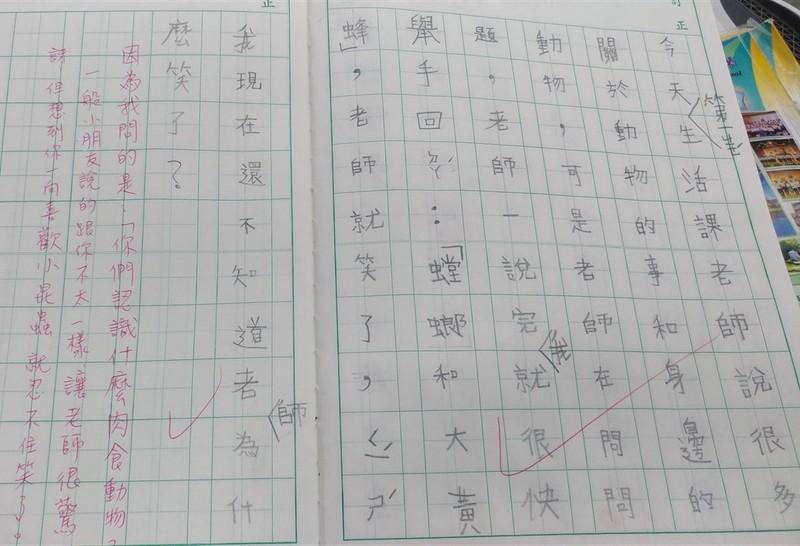 今天生活課老師說很多
關於動物的事和身邊的
動物，可是老師在問問
題，老師一說完我就很快
舉手回：「螳螂和大黃
蜂」，老師就笑了，
我現在還不知道老師為什
麼笑了？
因為我問的是：「你們認識什麼肉食動物？
一般小朋友說的跟你不太一樣，讓老師很驚
訝 但想到你一向喜歡小昆蟲 就忍不住笑了。